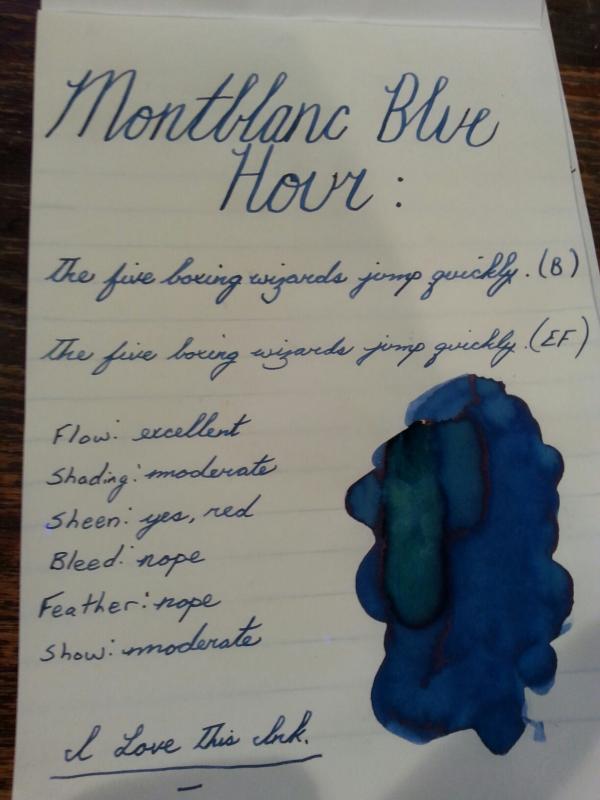 Montblanc Blue
Hour:
The five boxing wizards jump quickly. (B)
The five boxing wizards jump quickly. (EF)
Flow: excellent
Shading: moderate
Sheen: yes, red
Bleed: nope
Feather: nope
Show: moderate
I Love This Ink.